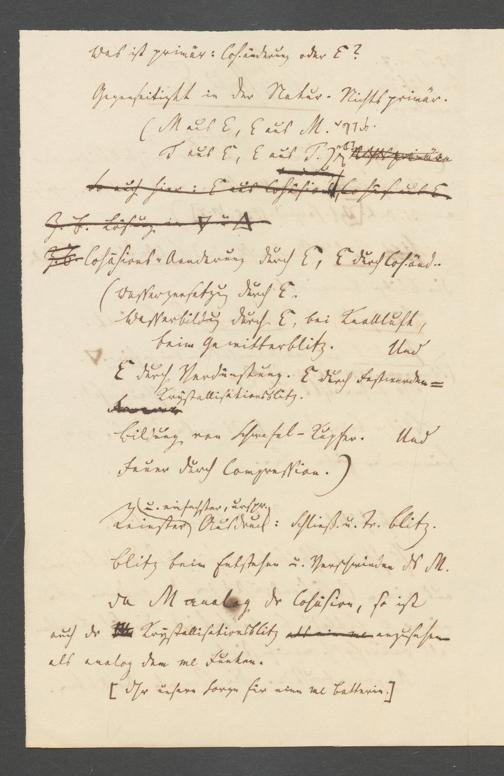 Was ist primär: Coh.änderung oder E?
Gegenseitigkeit in der Natur. Nichts primär.
(M aus E, E aus M.
T aus E, E aus T.
so auch hier: E aus Cohäsion, Cohäs. aus E.
z. B. Lösung in ▽ u. △
z.B. Cohäsions-Aenderung durch E, E durch Cohänd..
(Wasserzersetzung durch E.
Wasserbildung durch E, bei Knallluft,
beim Gewitterblitz. Und
E durch Verdunstung. E durch Festwerden=
Krystallisationsblitz.
Bildung von Schwefel-Kupfer. Und
Feuer durch Compression.)
u. einfachster, urspr.
Reinster Ausdruck: Schließ. u. Tr. blitz.
Blitz beim Entstehen u. Verschwinden des M.
Da M analog der Cohäsion, so ist
auch der Krystallisationsblitz anzusehen
als analog dem ml Funken.
[Dh unsere Sorge für eine ml Batterie.]